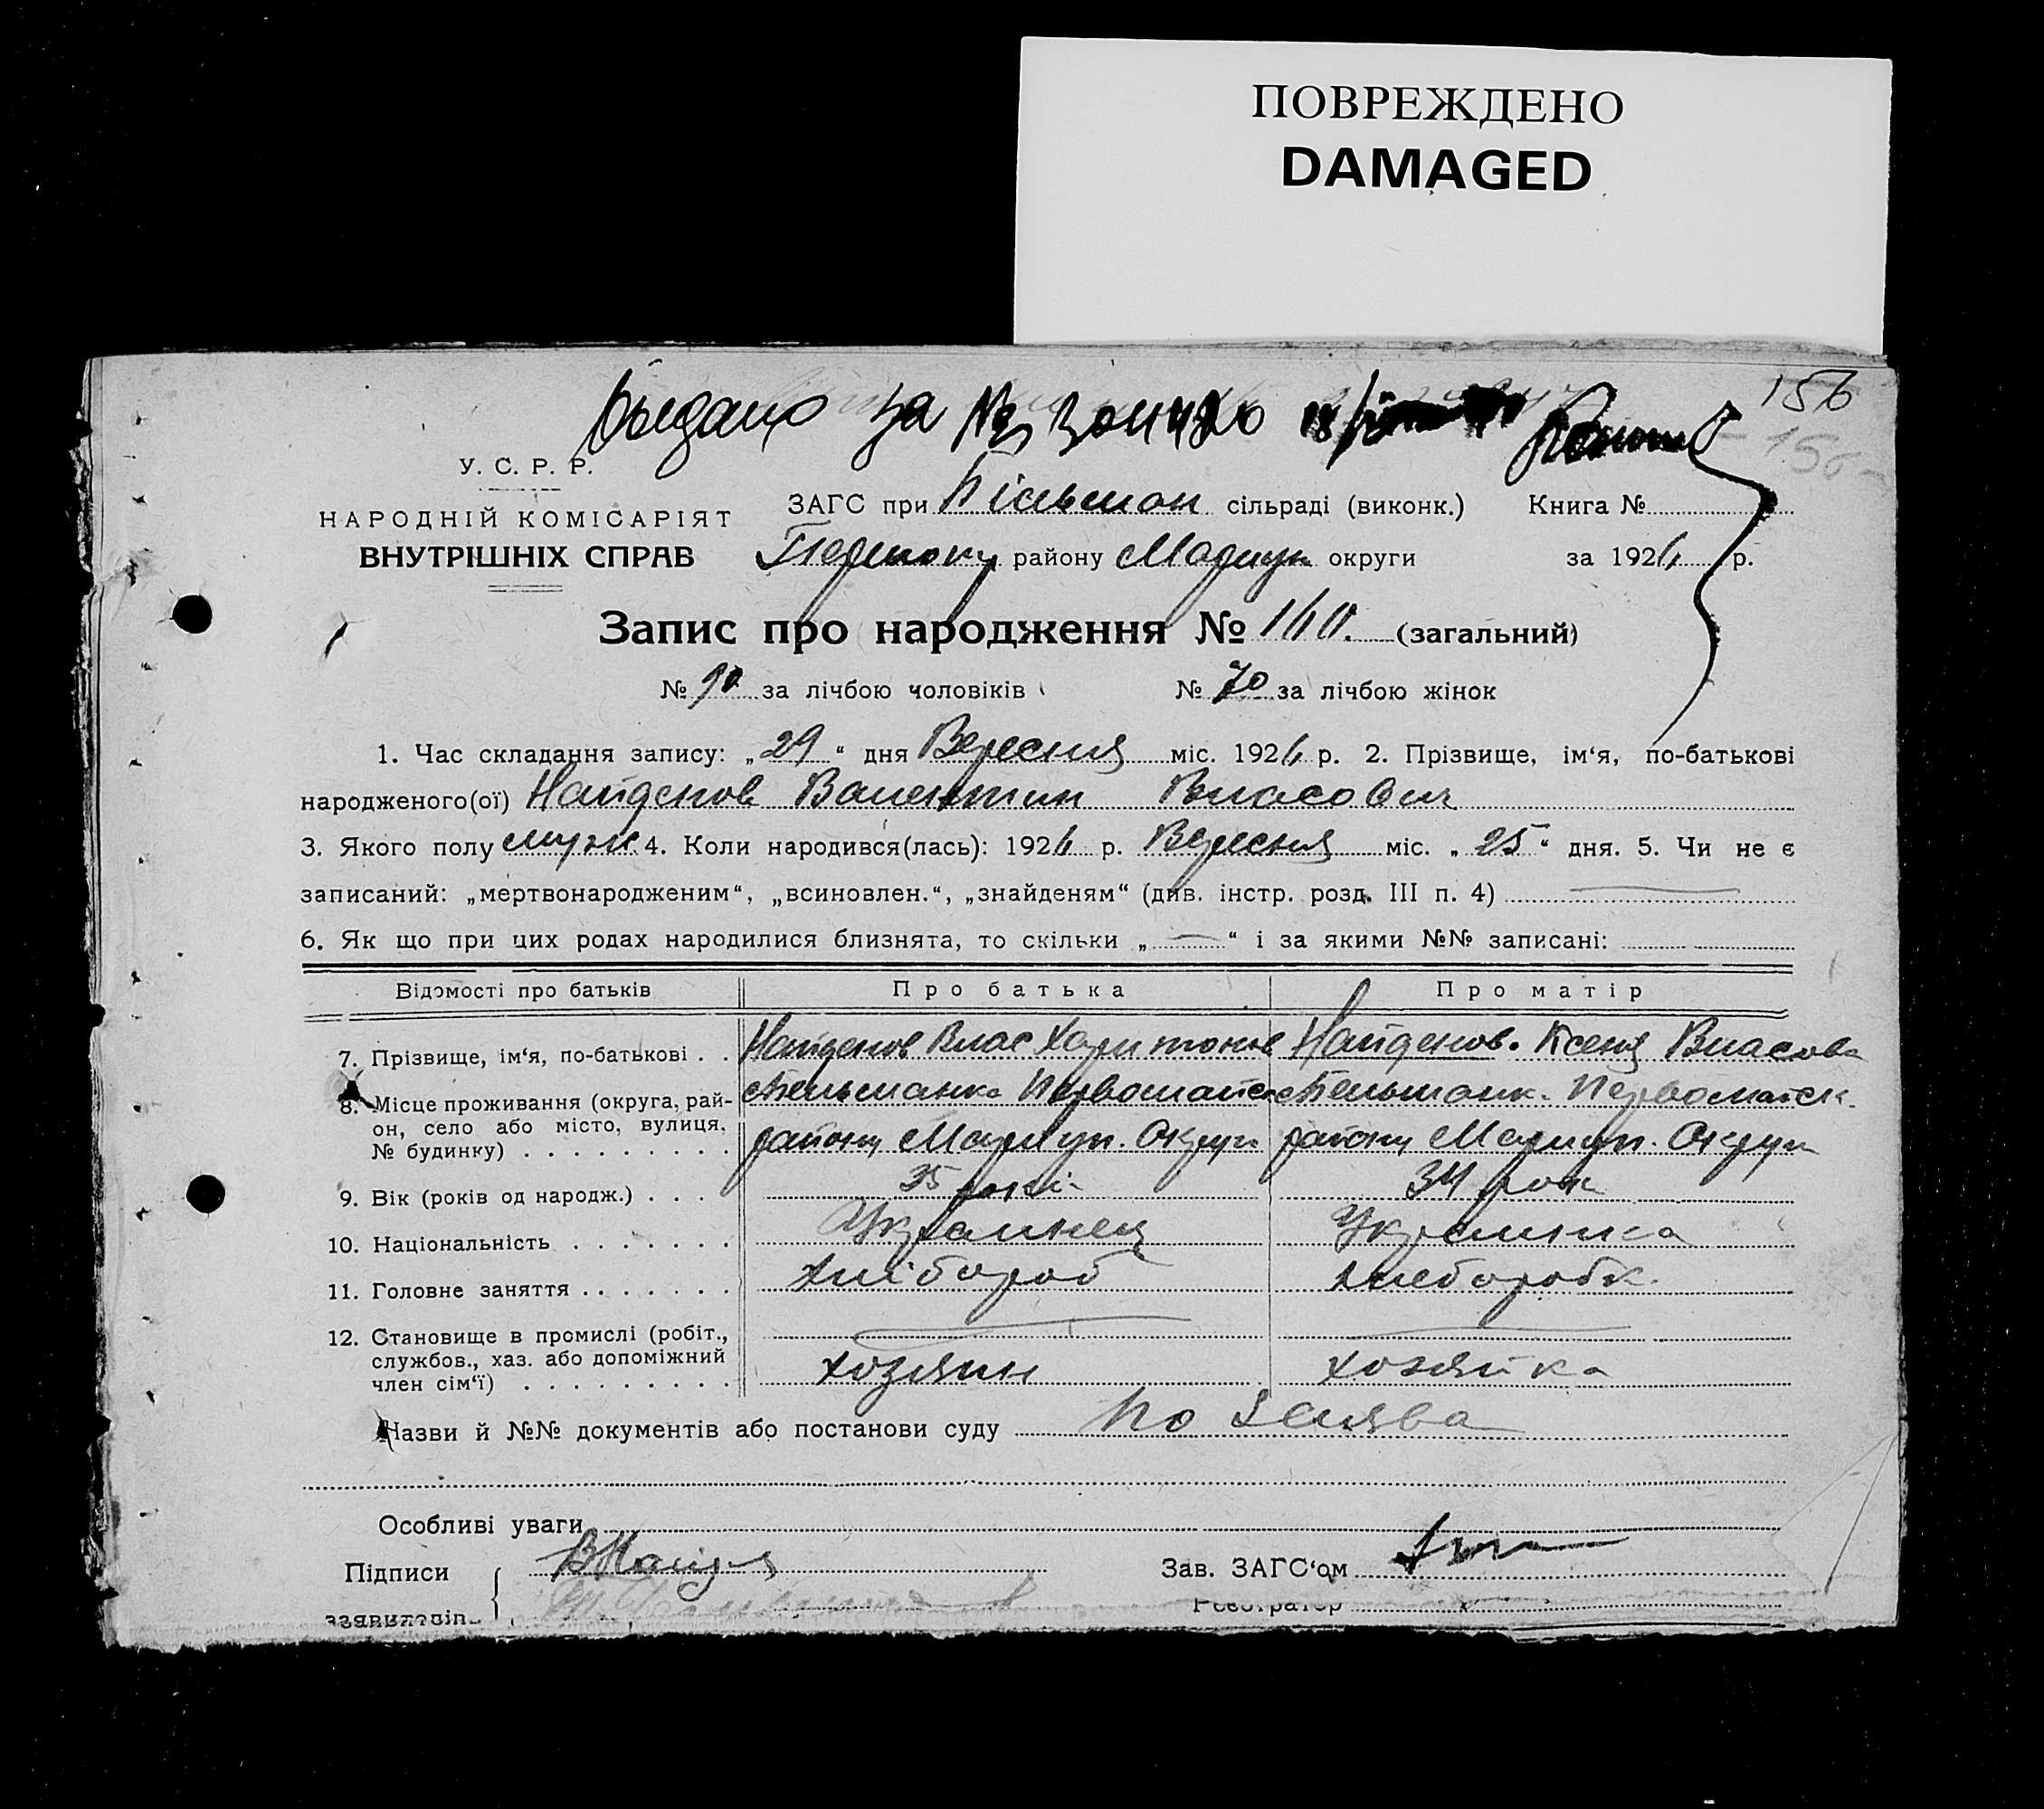 ПОВРЕЖДЕНО
DAMAGED
156
Выдано за №
У. С. Р. Р.
НАРОДНІЙ КОМІСАРІЯТ
ВНУТРІШНІХ СПРАВ
ЗАГС при сільраді (виконк.) Книга №
району Мариуп округи за 1926 р.
Запис про народження № 160. (загальний)
№ 90 за лічбою чоловіків № 70 за лічбою жінок
1. Час складання запису: „29“ дня Вересня міс. 1926 р. 2. Прізвище, ім‘я, по-батькові
народженого(ої) Найденов Валентин Власович
3. Якого полу муж. 4. Коли народився(лась): 1926 р. Вересня міс. „25“ дня. 5. Чи не є
записаний: „мертвонародженим“, „всиновлен.“, „знайденям“ (див. інстр. розд. III п. 4)
6. Як що при цих родах народилися близнята, то скільки „—“ і за якими №№ записані:
Відомості про батьків Про батька Про матір
7. Прізвище, ім‘я, по-батькові . . Найденов Влас Харитонов Найденов. Ксеня Власова
8. Місце проживання (округа, рай-
он, село або місто, вулиця,
№ будинку) . . . . . . . . . району Мариуп. Округи району Мариуп. Округи
9. Вік (років од народж.) . . . 35 років 34 рок
10. Національність . . . . . . . Украинец Украинка
11. Головне заняття . . . . . . . хлібороб хлеборобк.
12. Становище в промислі (робіт.,
службов., хаз. або допоміжний
член сім‘ї) . . . . . . . . . хозяин хозяйка
Назви й №№ документів або постанови суду По
Особливі уваги
Підписи Зав. ЗАГС‘ом
заявителів Реєстратор